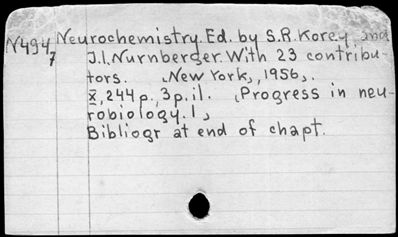 N494 Neurochemistry. Ed. by S.R. Korey and
7 J.I. Nurnberger. With 23 contribu-
tors. [New York], [1956].
X, 244 p., 3 p. il. (Progress in neu-
robiology. 1)
Bibliogr at end of chapt.